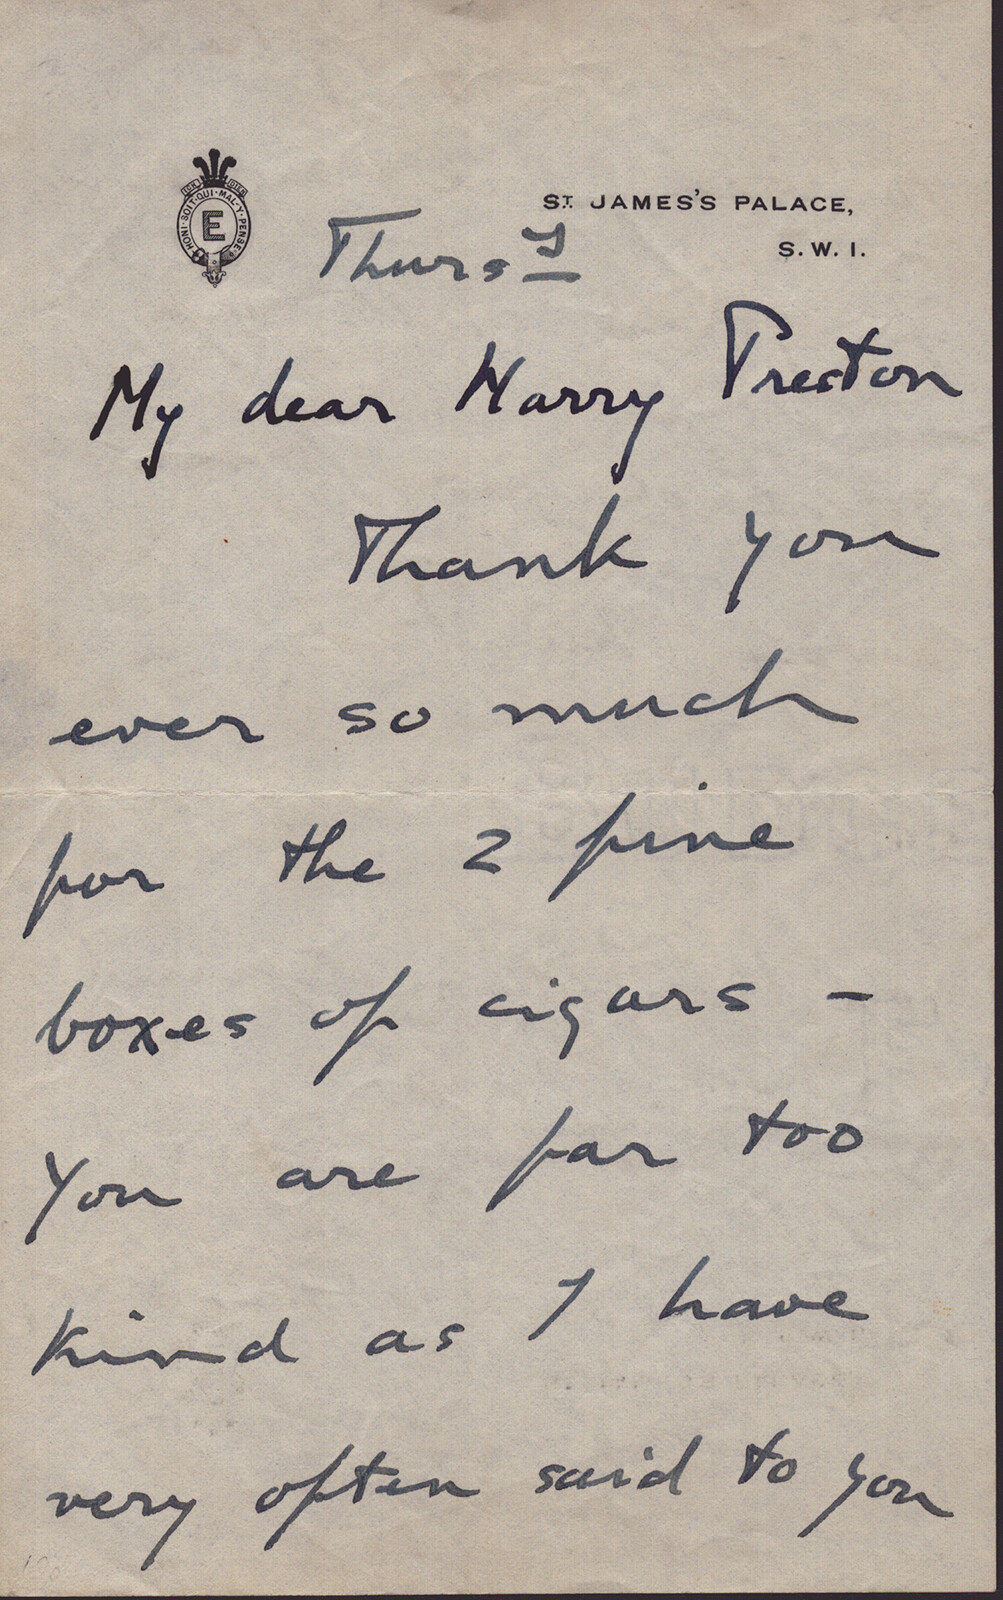 ICH DIEN
HONI·SOIT·QUI·MAL·Y·PENSE
E
ST. JAMES'S PALACE,
S.W.1.
Thursy
My dear Harry Preston
Thank you
ever so much
for the 2 fine
boxes of cigars –
You are far too
kind as I have
very often said to you